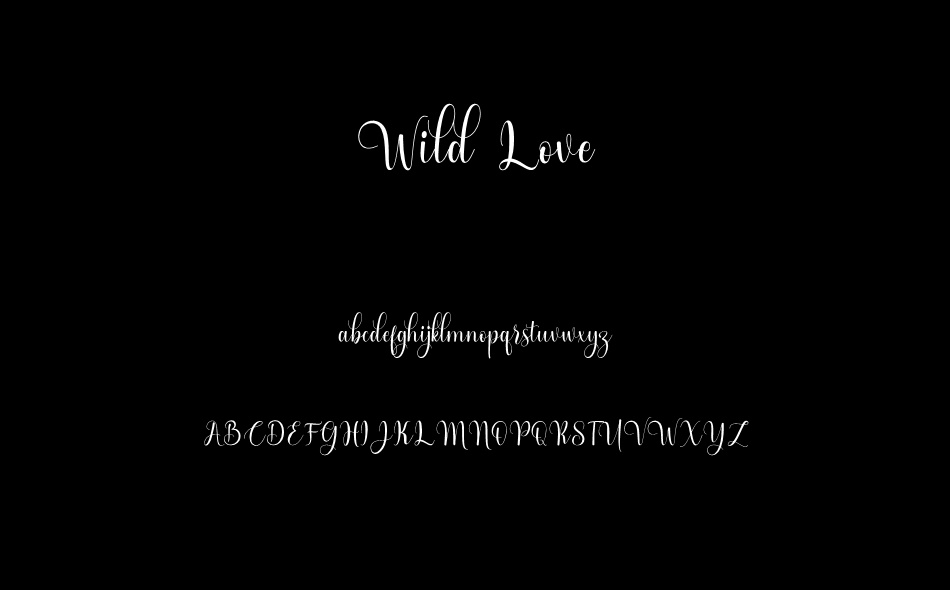 Wild Love
abcdefghijklmnopqrstuvwxyz
ABCDEFGHIJKLMNOPQRSTUVWXYZ